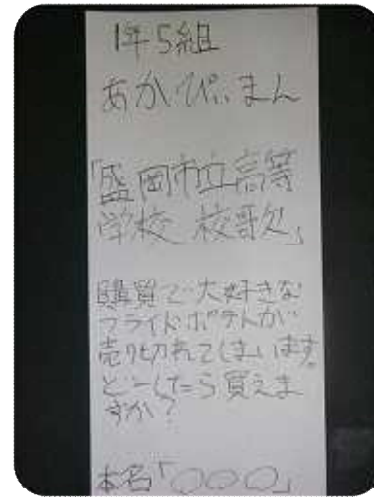 1年5組
あかぴぃまん
「盛岡市立高等
学校 校歌」
購買で大好きな
フライドポテトが
売り切れてしまいます。
どーしたら買えま
すか？
本名「○○○」